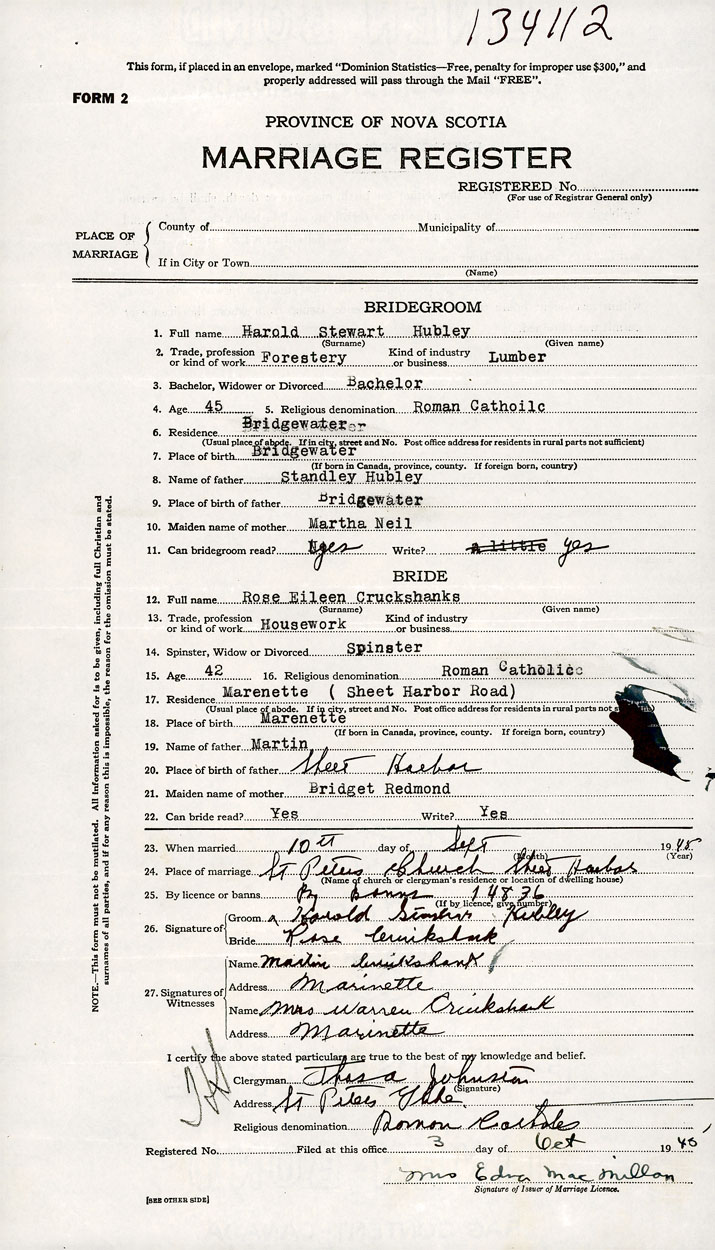 134112
This form, if placed in an envelope, marked "Dominion Statistics—Free, penalty for improper use $300," and
properly addressed will pass through the Mail "FREE".
FORM 2
PROVINCE OF NOVA SCOTIA
MARRIAGE REGISTER
REGISTERED No.
(For use of Registrar General only)
PLACE OF MARRIAGE
County of Municipality of
If in City or Town
(Name)
BRIDEGROOM
1. Full name Harold Stewart Hubley
(Surname) (Given name)
2. Trade, profession or kind of work Forestery Kind of industry or business Lumber
3. Bachelor, Widower or Divorced Bachelor
4. Age 45 5. Religious denomination Roman Cathoilc
6. Residence Bridgewater
(Usual place of abode. If in city, street and No. Post office address for residents in rural parts not sufficient)
7. Place of birth Bridgewater
(If born in Canada, province, county. If foreign born, country)
8. Name of father Standley Hubley
9. Place of birth of father Bridgewater
10. Maiden name of mother Martha Neil
11. Can bridegroom read? yes Write? a little yes
BRIDE
12. Full name Rose Eileen Cruckshanks
(Surname) (Given name)
13. Trade, profession or kind of work Housework Kind of industry or business
14. Spinster, Widow or Divorced Spinster
15. Age 42 16. Religious denomination Roman Catholic
17. Residence Marenette ( Sheet Harbor Road)
(Usual place of abode. If in city, street and No. Post office address for residents in rural parts not
18. Place of birth Marenette
(If born in Canada, province, county. If foreign born, country)
19. Name of father Martin
20. Place of birth of father Sheet Harbor
21. Maiden name of mother Bridget Redmond
22. Can bride read? Yes Write? Yes
23. When married 10th day of Sept 1948
(Month) (Year)
24. Place of marriage St Peters Church Sheet Harbor
(Name of church or clergyman's residence or location of dwelling house)
25. By licence or banns By Banns 14836
(If by licence, give number)
26. Signature of
Groom Harold Hubley
Bride Rose Cruikshank
27. Signatures of Witnesses
Name Martin Cruikshank
Address Marinette
Name Mrs Warren Cruikshank
Address Marinette
I certify the above stated particulars are true to the best of my knowledge and belief.
Clergyman Thos a Johnston
(Signature)
Address St Peters
Religious denomination Roman
Registered No. Filed at this office 3 day of Oct 1948
Mrs Edna MacMillan
Signature of Issuer of Marriage Licence.
[SEE OTHER SIDE]
NOTE.—This form must not be mutilated. All information asked for is to be given, including full Christian and
surnames of all parties, and if for any reason this is impossible, the reason for the omission must be stated.